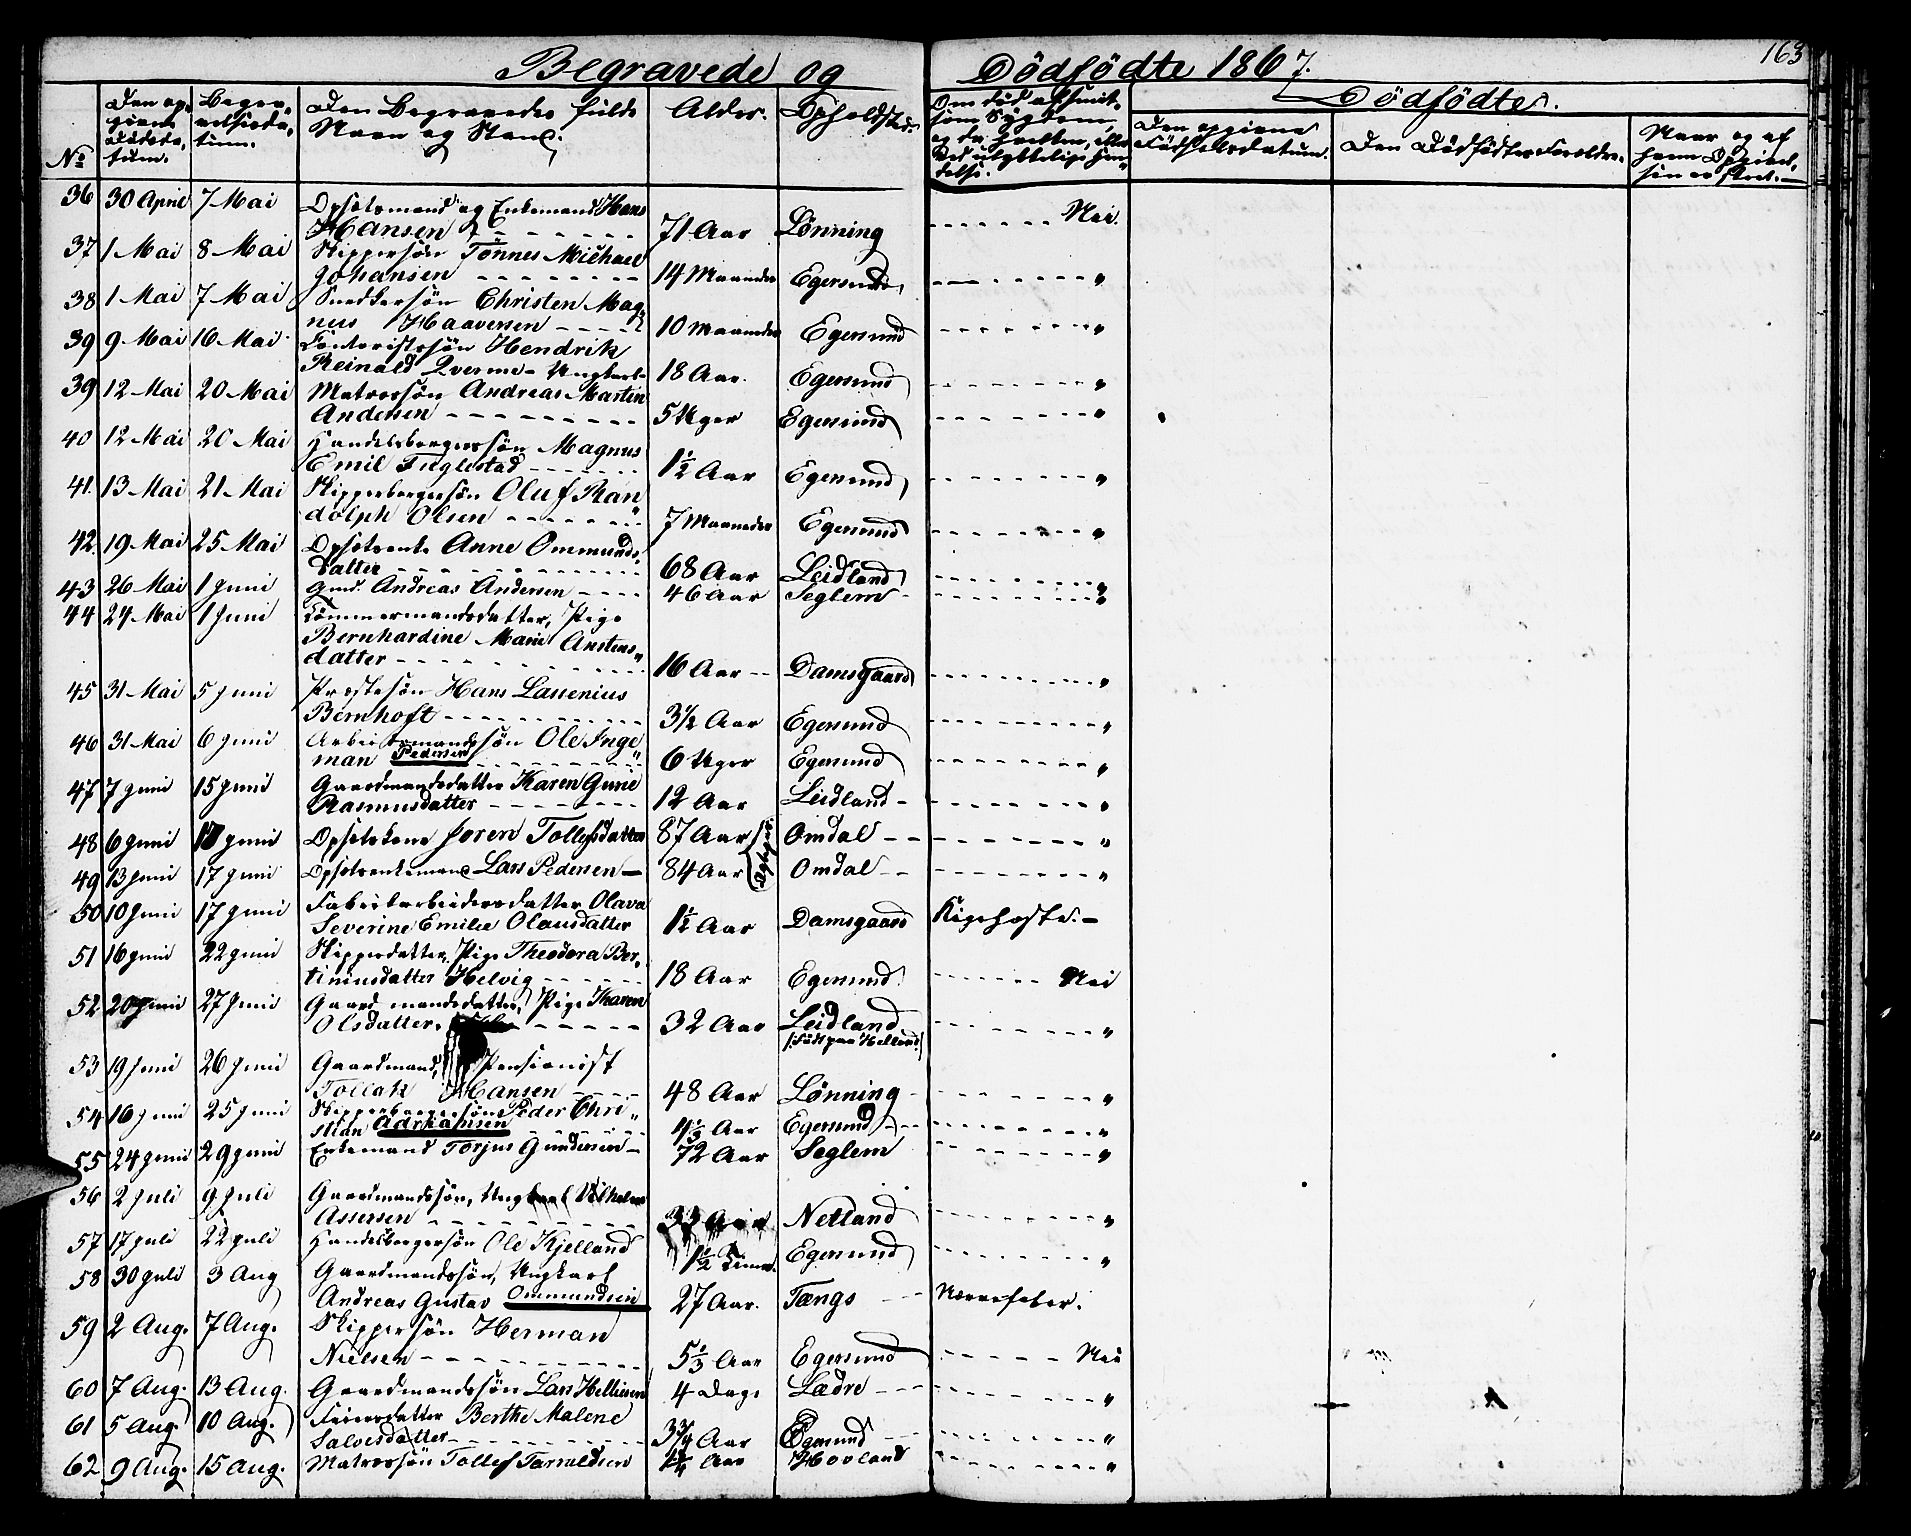 163
Begravede og Dödfödte 1867.
Dödfödte.
No
Den opgivne Dödsdatum.
Begravelsesdatum.
Den Begravedes fulde Navn og Stand.
Alder.
Opholdsted.
Om död af smitsom Sygdom, og da hvilken, eller ved ulykkelig Hændelse.
Den opgivne Födselsdatum.
Den Dödfödtes Forældre.
Naar og af hvem Opgivelsen er skeet.
36 30 April 7 Mai Opsetsmand og Enkemand Hans
Hansen 71 Aar Lönning Nei.
37 1 Mai 8 Mai Skippersön Tönnes Michael
Johansen 14 Maaneder Egersund "
38 1 Mai 7 Mai Snedkersön Christen Mag-
nus Haaversen 10 Maaneder Egersund "
39 9 Mai 16 Mai Contoristsön Hendrik
Reinald Qverme - Ungkarl 18 Aar. Egersund "
39 12 Mai 20 Mai Matrossön Andreas Martin
Andersen 5 Uger Egersund "
40 12 Mai 20 Mai Handelsborgersön Magnus
Emil Fuglestad 1½ Aar Egersund "
41. 13 Mai 21 Mai Skipperborgersön Oluf Ran
dolph Olsen 7 Maaneder Egersund "
42. 19 Mai 25 Mai Opsetsenke Anne Ommunds
datter 68 Aar Leidland "
43 26 Mai 1 Juni Gmd. Andreas Andersen 46 Aar Seglem "
44 24 Mai 1 Juni Tömmermandsdatter, Pige
Bernhardine Marie Anstens
datter 16 Aar Damsgaard "
45 31 Mai 5 Juni Præstesön Hans Lassenius
Bernhoft 3½ Aar Egersund "
46 31 Mai 6 Juni Arbeidsmandssön Ole Inge
man Pedersen 6 Uger Egersund "
47 7 Juni 15 Juni Gaardmandsdatter Karen Gurie
Rasmusdatter 12 Aar Leidland "
48 6 Juni 17 Juni Opsetskone Joren Tollefsdatter 87 Aar Omdal "
49 13 Juni 17 Juni Opsetsenkemand Lars Pedersen 84 Aar Omdal "
50 10 Juni 17 Juni Fabrikarbeidersdatter Olava
Severine Emilie Olausdatter 1½ Aar Damsgaard Kighoste.
51 16 Juni 22 Juni Skippersdatter, Pige Theodora Ber-
tiniusdatter Helvig 18 Aar Egersund Nei
52 20 Juni 27 Juni Gaardmandsdatter, Pige Karen
Olsdatter 32 Aar Leidland "
(Född paa Helland)
53 19 Juni 26 Juni Gaardmand, Pensionist
Tollak Hansen 48 Aar Lönning "
54 16 Juni 25 Juni Skipperborgersön Peder Chri-
stian Adriansen 4⅓ Aar Egersund "
55 24 Juni 29 Juni Enkemand Torjus Gundersen 72 Aar Seglem "
56 2 Juli 9 Juli Gaardmandssön, Ungkarl Vilhelm
Assersen 33 Aar Netland "
57 17 Juli 22 Juli Handelsborgersön Ole Kjelland 1½ Time. Egersund "
58 30 Juli 3 Aug Gaardmandssön, Ungkarl
Andreas Gustav Ommundsen 27 Aar. Tængs Nervefeber.
59 2 Aug. 7 Aug. Skippersön Herman
Nielsen 5⅓ Aar Egersund Nei
60 7 Aug. 13 Aug. Gaardmandssön Lars Helliesen 4 Dage Lædre "
61 5 Aug. 10 Aug. Feiersdatter Berthe Malene
Salvesdatter 3¾ Aar Egersund "
62 9 Aug. 15 Aug. Matrossön Tollef Tarraldsen Aar Hovland "